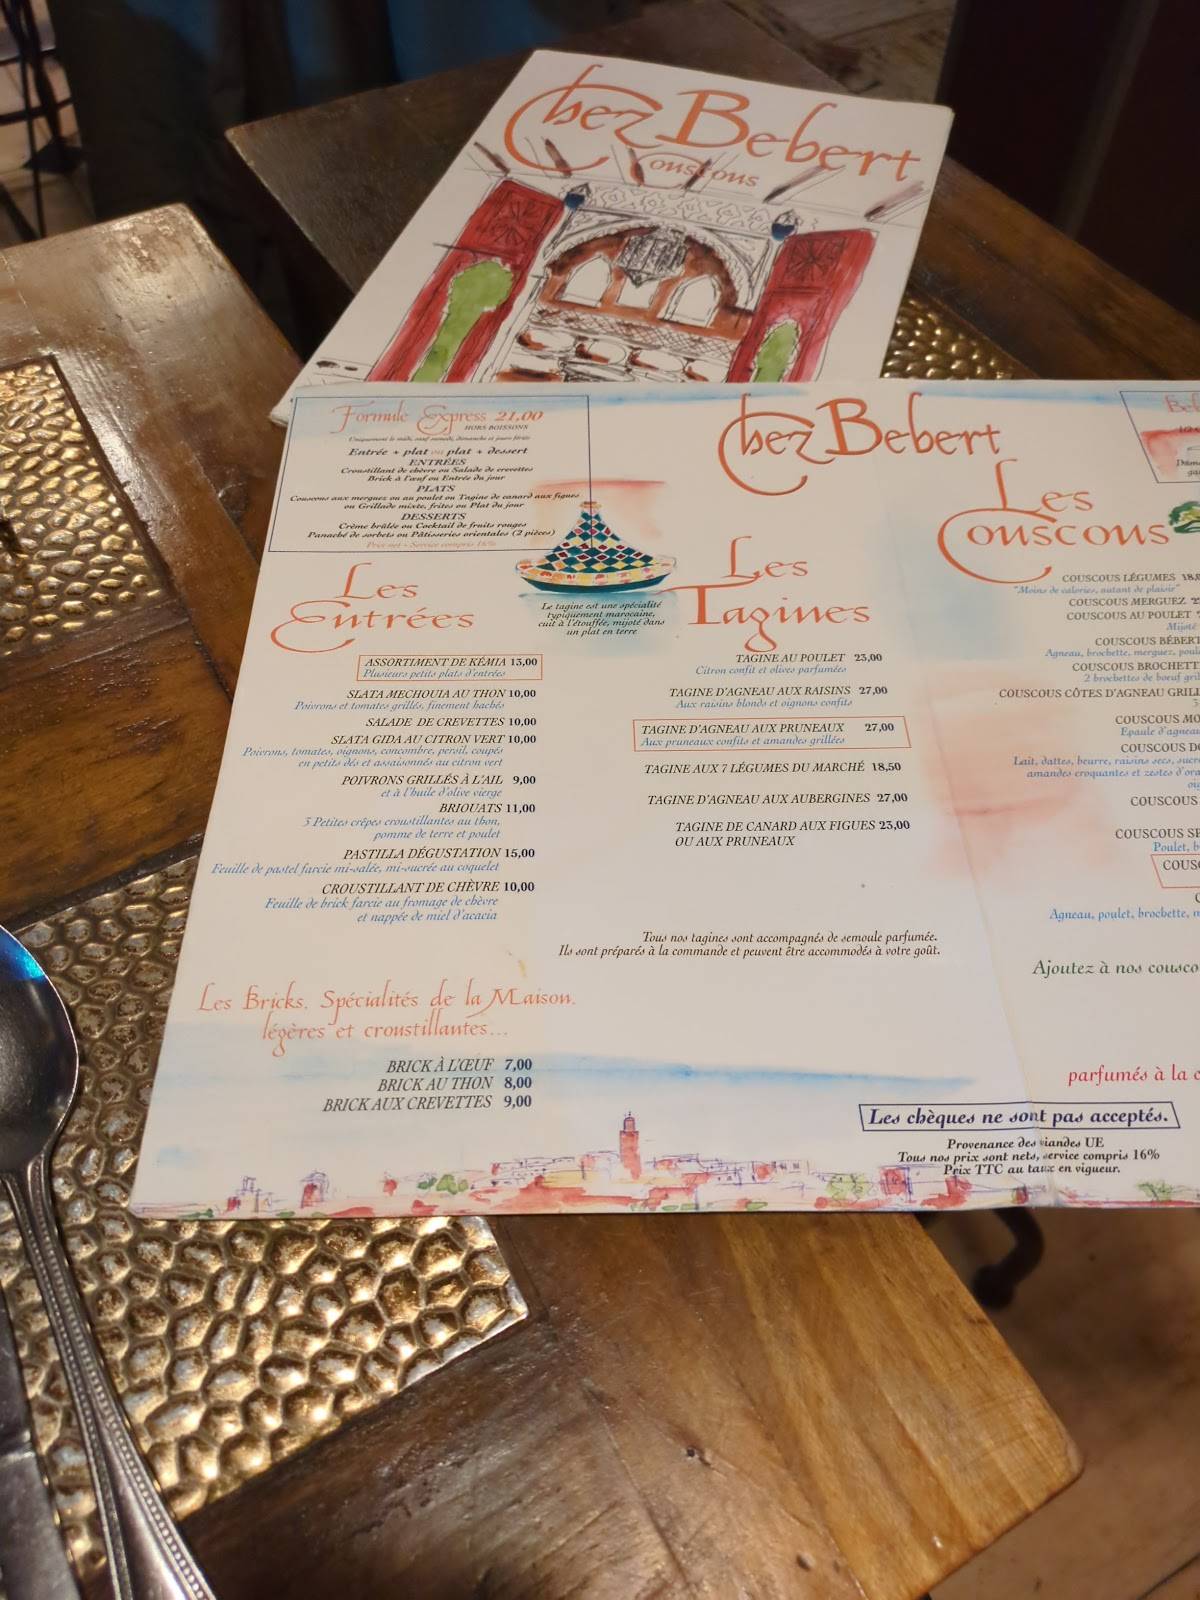 Chez Bebert
Couscous
Formule Express 21,00
HORS BOISSONS
Uniquement le midi, sauf samedi, dimanche et jours fériés
Entrée + plat ou plat + dessert
ENTRÉES
Croustillant de chèvre ou Salade de crevettes
Brick à l'œuf ou Entrée du jour
PLATS
Couscous aux merguez ou au poulet ou Tagine de canard aux figues
ou Grillade mixte, frites ou Plat du jour
DESSERTS
Crème brûlée ou Cocktail de fruits rouges
Panaché de sorbets ou Pâtisseries orientales (2 pièces)
Prix net - Service compris 16%
Chez Bebert
Les
Entrées
ASSORTIMENT DE KÉMIA 13,00
Plusieurs petits plats d'entrées
SLATA MECHOUIA AU THON 10,00
Poivrons et tomates grillés, finement hachés
SALADE DE CREVETTES 10,00
SLATA GIDA AU CITRON VERT 10,00
Poivrons, tomates, oignons, concombre, persil, coupés
en petits dés et assaisonnés au citron vert
POIVRONS GRILLÉS À L'AIL 9,00
et à l'huile d'olive vierge
BRIOUATS 11,00
3 Petites crêpes croustillantes au thon,
pomme de terre et poulet
PASTILLA DÉGUSTATION 15,00
Feuille de pastel farcie mi-salée, mi-sucrée au coquelet
CROUSTILLANT DE CHÈVRE 10,00
Feuille de brick farcie au fromage de chèvre
et nappée de miel d'acacia
Les Bricks, Spécialités de la Maison,
légères et croustillantes...
BRICK À L'ŒUF 7,00
BRICK AU THON 8,00
BRICK AUX CREVETTES 9,00
Le tagine est une spécialité
typiquement marocaine,
cuit à l'étouffée, mijoté dans
un plat en terre
Les
Tagines
TAGINE AU POULET 23,00
Citron confit et olives parfumées
TAGINE D'AGNEAU AUX RAISINS 27,00
Aux raisins blonds et oignons confits
TAGINE D'AGNEAU AUX PRUNEAUX 27,00
Aux pruneaux confits et amandes grillées
TAGINE AUX 7 LÉGUMES DU MARCHÉ 18,50
TAGINE D'AGNEAU AUX AUBERGINES 27,00
TAGINE DE CANARD AUX FIGUES 23,00
OU AUX PRUNEAUX
Tous nos tagines sont accompagnés de semoule parfumée.
Ils sont préparés à la commande et peuvent être accommodés à votre goût.
Les
Couscous
COUSCOUS LÉGUMES
"Moins de calories, autant de plaisir"
COUSCOUS MERGUEZ
COUSCOUS AU POULET
Mijoté
COUSCOUS BÉBERT
Agneau, brochette, merguez,
COUSCOUS BROCHETTE
2 brochettes de bœuf
COUSCOUS CÔTES D'AGNEAU
COUSCOUS
Epaule d'agneau
COUSCOUS
Lait, dattes, beurre, raisins secs,
amandes croquantes et zestes
COUSCOUS
COUSCOUS
Poulet,
Agneau, poulet, brochette,
Ajoutez à nos
parfumés à la
Les chèques ne sont pas acceptés.
Provenance des viandes UE
Tous nos prix sont nets, service compris 16%
Prix TTC au taux en vigueur.